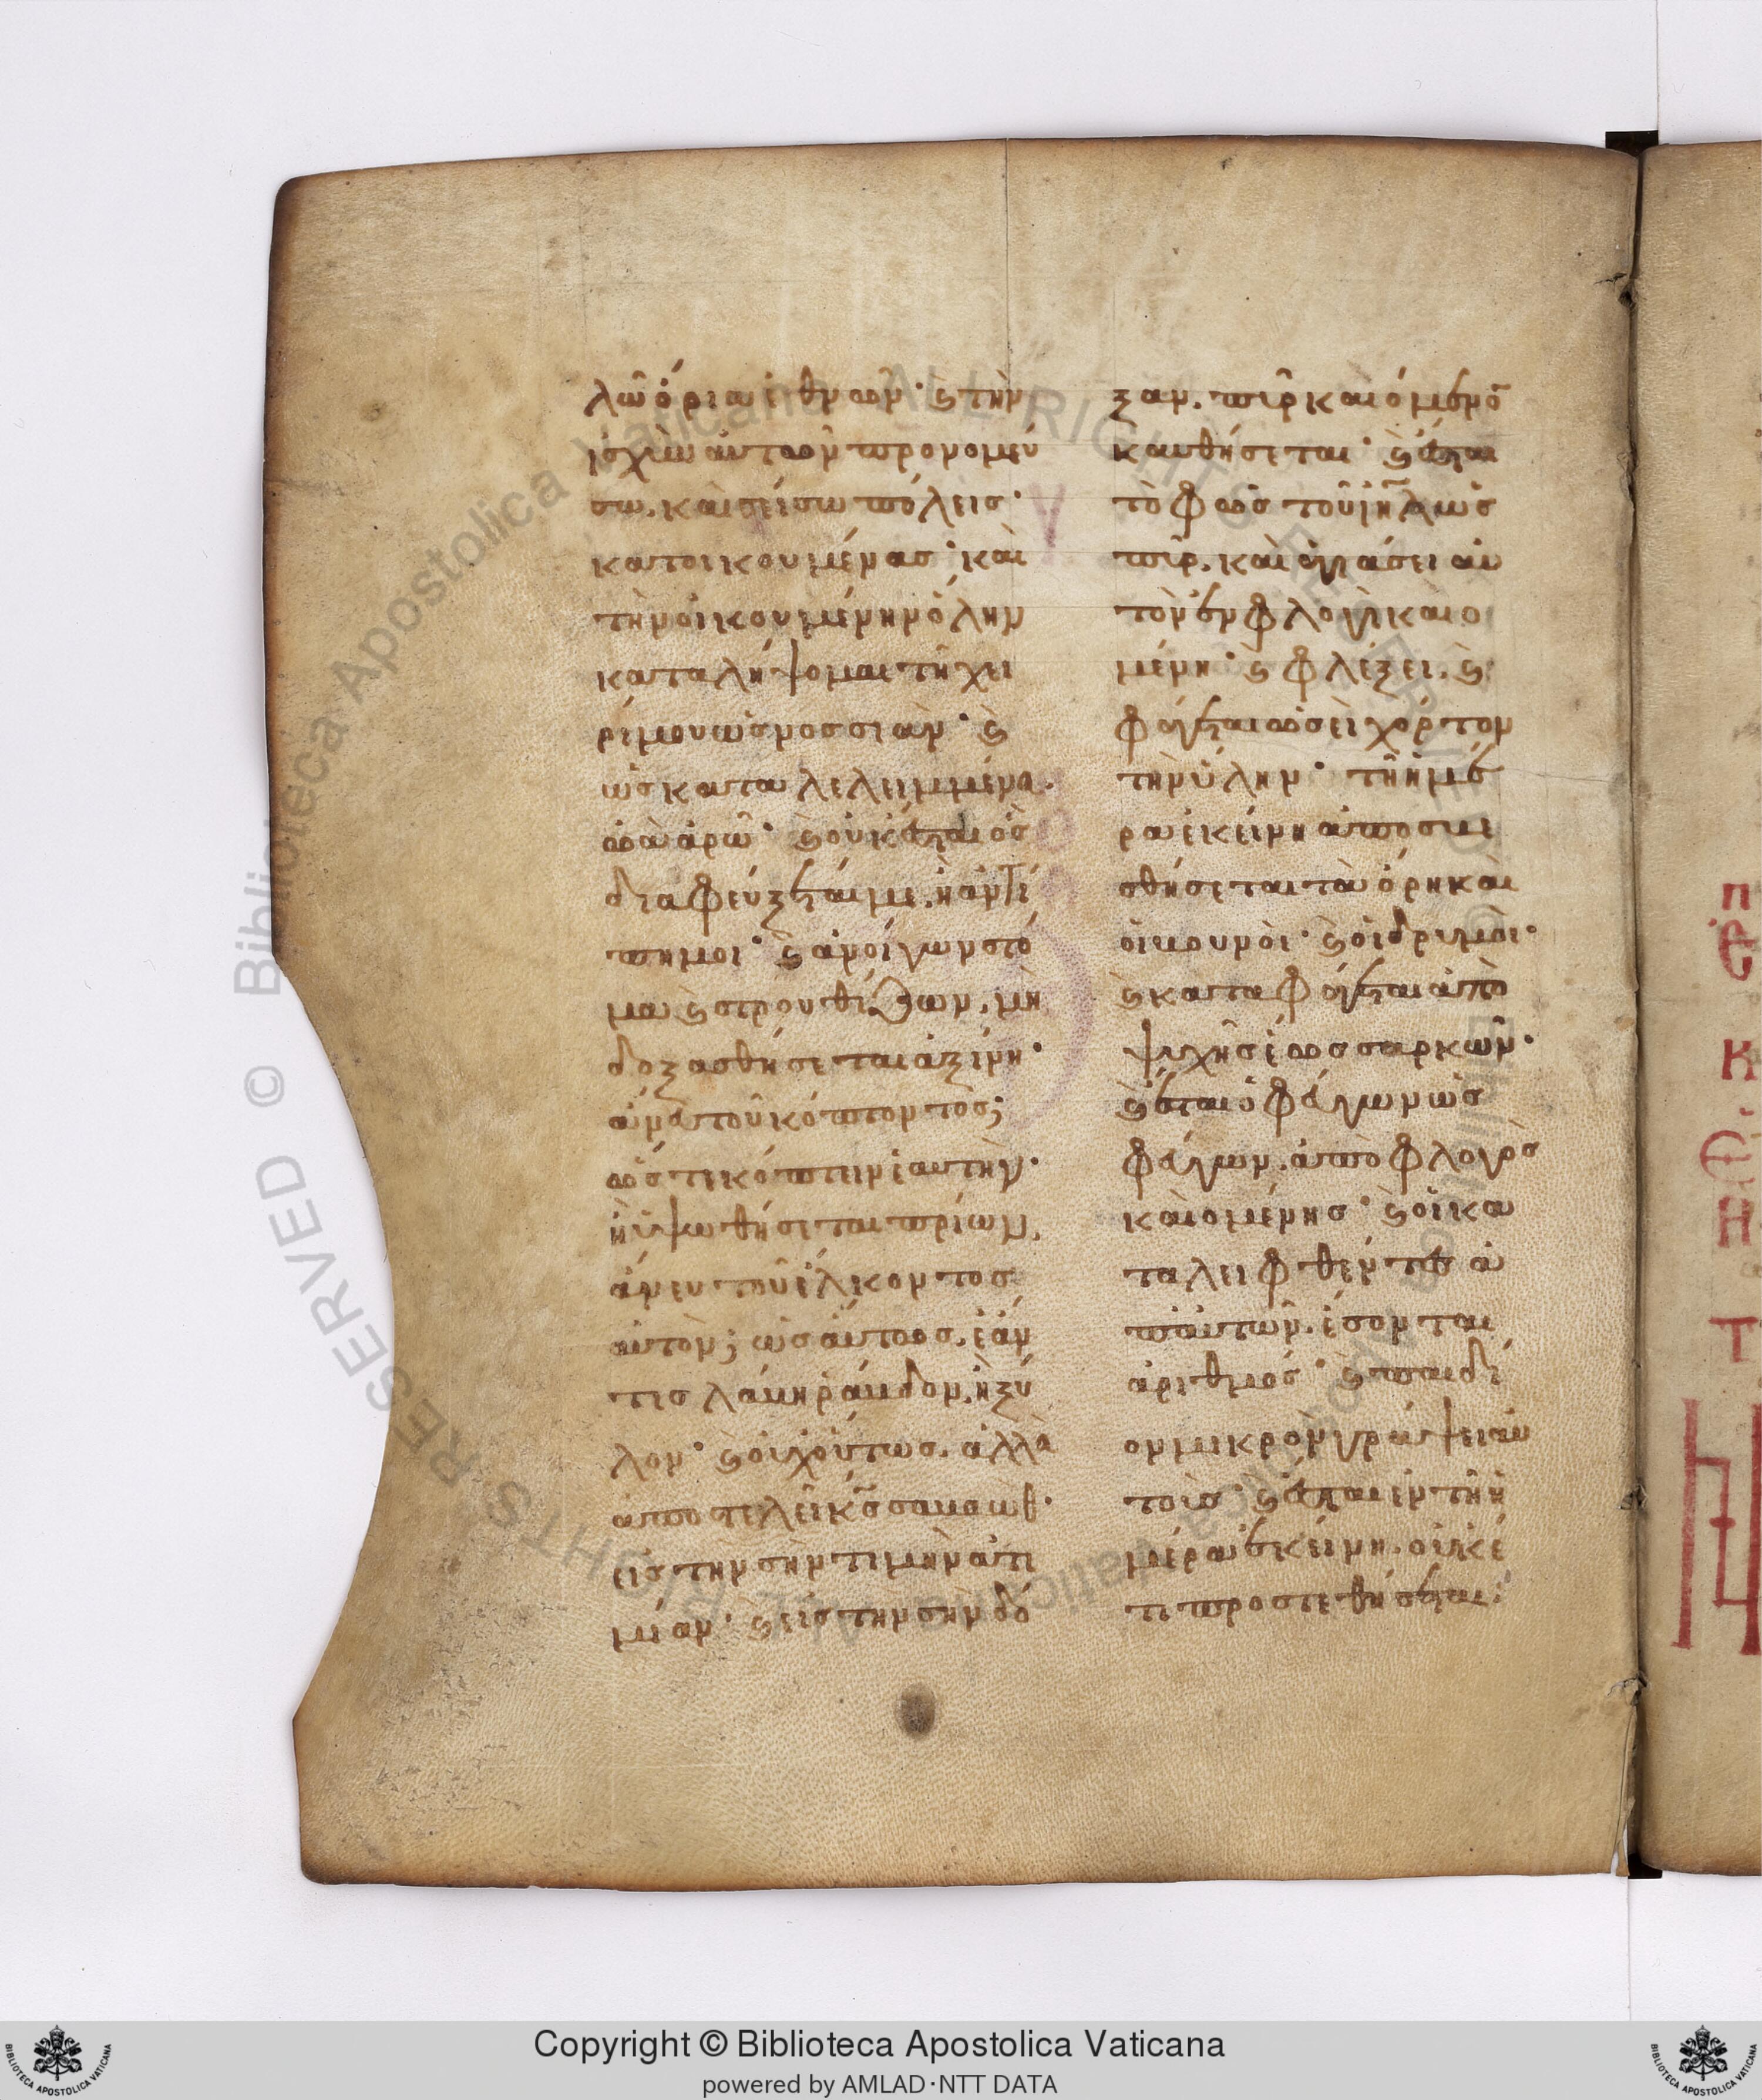 λῶ ὅρια ἐθνῶν· ϗ τὴν
ἰσχὺν αὐτῶν προνομεύ
σω, καὶ σείσω πόλεις·
κατοικουμένας· καὶ
τὴν οἰκουμένην ὅλην
καταλήψομαι τῆ χει
ρί μου ὡς νοσσιὰν· ϗ
ὡς καταλελειμμένα.
ὠὰ ἀρῶ· ϗ οὐκ ἔσται ὃς
διαφεύξεταί με, ἢ ἀντεί
πη μοι· ϗ ἀνοίγων στό
μα ϗ στρουθίζων, μὴ
δοξασθήσεται ἀξίνη·
ἄνευ τοῦ κόπτοντος;
ὥστε κόπτειν ἑαυτήν·
ἢ ὑψωθήσεται πρίων,
ἄνευ τοῦ ἕλκοντος
αὐτόν; ὡσαύτως, ἐάν
τις λάβη ράβδον, ἢ ξύ
λον· ϗ οὐχ οὕτως, ἀλλὰ
ἀποστελεῖ κς σαβαώθ·
εἰς τὴν σὴν τιμὴν ἀτι
μίαν· ϗ εἰς τὴν σὴν δό
ξαν, πῦρ καιόμενον
καυθήσεται· ϗ ἔσται
τὸ φῶς τοῦ ιηλ ὡς
πῦρ, καὶ ἁγιάσει αὐ
τὸν ἐν φλογὶ καιο
μένη· ϗ φλέξει, ϗ
φάγεται ὡσεὶ χόρτον
τὴν ὕλην· τῆ ἡμέ
ρα ἐκείνη ἀποσβε
σθήσεται τὰ ὄρη καὶ
οἱ βουνοὶ· ϗ οἱ δρυμοὶ·
ϗ καταφάγεται ἀπὸ
ψυχῆς ἕως σαρκῶν·
ϗ ἔσται ὁ φεύγων ὡς
φεύγων, ἀπὸ φλογὸς
καιομένης· ϗ οἱ κα
ταλειφθέντες ἀ
π' αὐτῶν, ἔσονται
ἀριθμός· ϗ παιδί
ον μικρὸν γράψει αὐ
τούς· ϗ ἔσται ἐν τῆ ἡ
μέρα ἐκείνη, οὐκέ
τι προστεθήσεται·